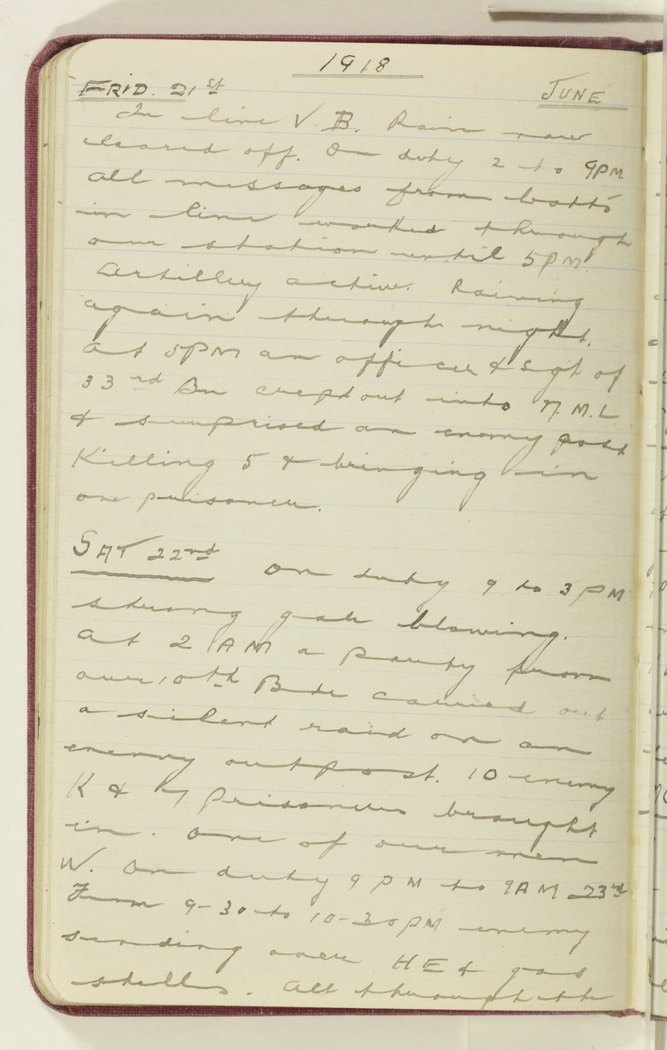 1918
FRID. 21st JUNE
In line V.B. Rain now
cleared off. On duty 2 to 9PM
all messages from batts
in line worked through
our station until 5PM.
Artillery active. Raining
again through night.
At 5PM an officer & Sgt of
33rd Bn crept out into N.M.L
& surprised an enemy post
Killing 5 & bringing in
one prisoner.
SAT 22nd On duty 9 to 3PM
strong gale blowing.
At 2 AM a party from
our 10th Bde carried out
a silent raid on an
enemy outpost. 10 enemy
K & 7 prisoners brought
in. One of our men
W. On duty 9PM to 9AM 23rd
From 9-30 to 10-30PM enemy
sending over HE & gas
shells. All through the